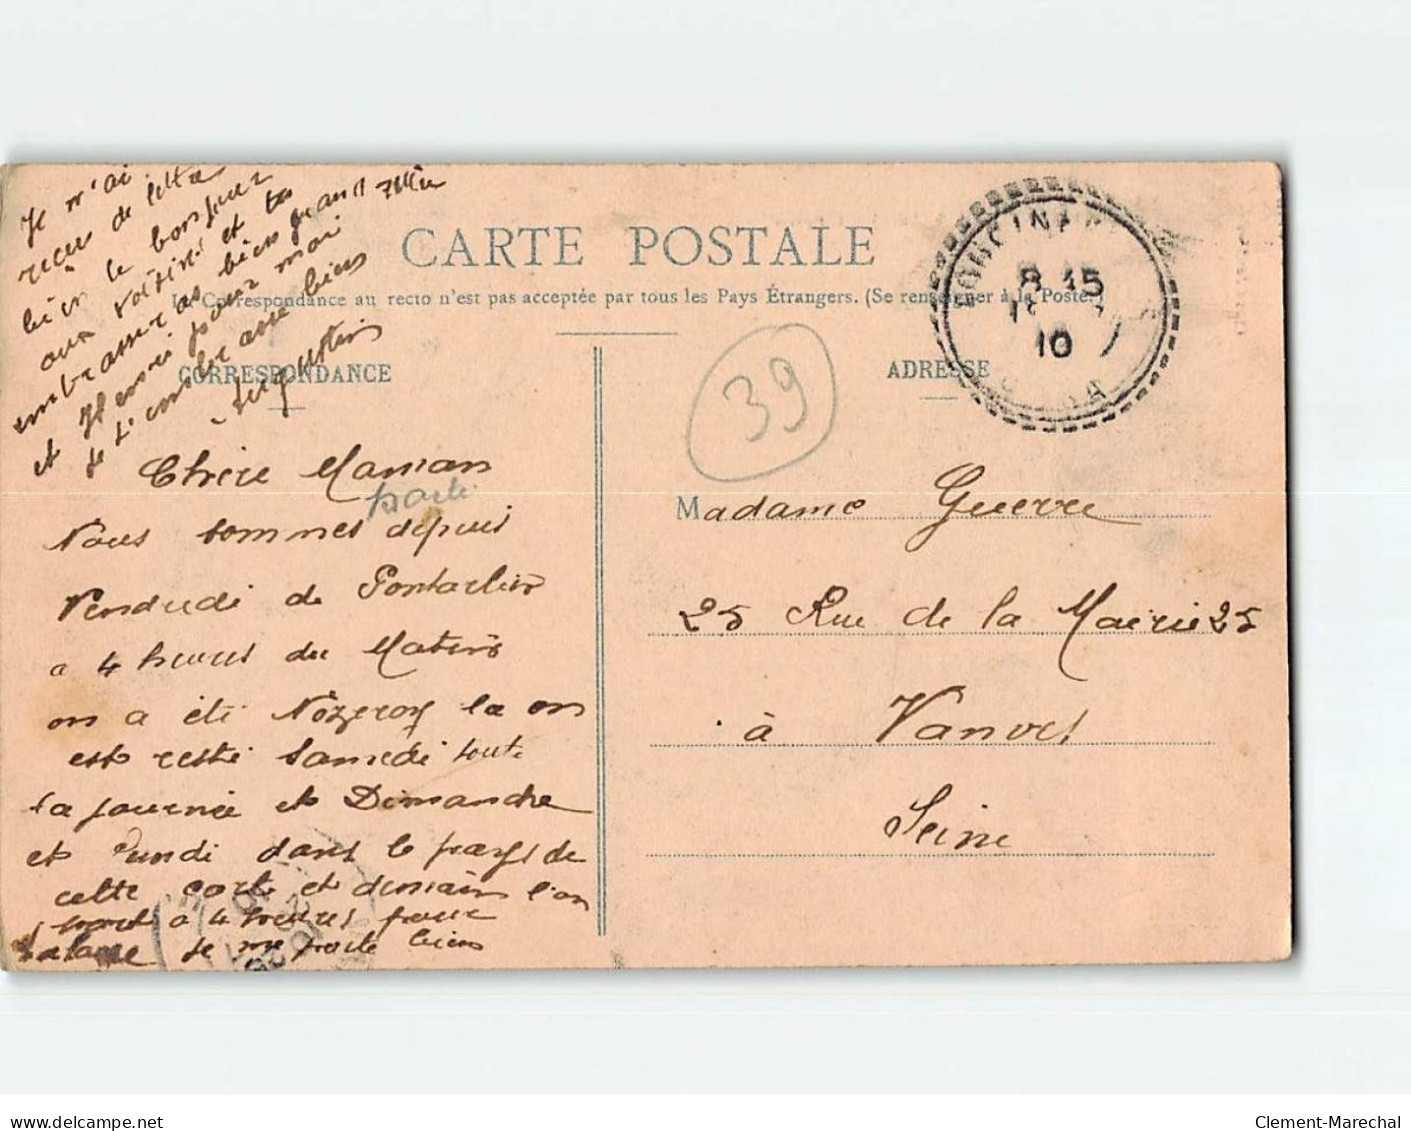 Je n'ai
recus de letta
bien le bonjour
aux voisins et tu
embrasseras bien grand mère
et Henri pour moi
Je t'embrasse bien
Augustin
CARTE POSTALE
La Correspondance au recto n'est pas acceptée par tous les Pays Étrangers. (Se renseigner à la Poste)
CORRESPONDANCE
ADRESSE
8 45
10
39
Chère Maman
parti
Nous sommes depuis
Vendredi de Pontarlier
a 4 heures du Matin
on a été Nozeroy la on
est resté Samedi toute
la journée et Dimanche
et Lundi dans le pays de
cette carte et demain l'on
part a 4 heures pour
Je me porte bien
Madame Guerre
25 Rue de la Mairie 25
à Vanves
Seine
Clement-Marechal
delcampe.net